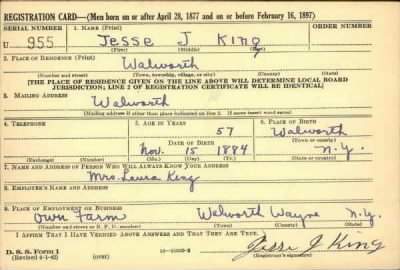 REGISTRATION CARD—(Men born on or after April 28, 1877 and on or before February 16, 1897)
SERIAL NUMBER 1. NAME (Print) ORDER NUMBER
U 955 Jesse J King
(First) (Middle) (Last)
2. PLACE OF RESIDENCE (Print)
Walworth
(Number and street) (Town, township, village, or city) (County) (State)
[THE PLACE OF RESIDENCE GIVEN ON THE LINE ABOVE WILL DETERMINE LOCAL BOARD
JURISDICTION; LINE 2 OF REGISTRATION CERTIFICATE WILL BE IDENTICAL]
3. MAILING ADDRESS
Walworth
[Mailing address if other than place indicated on line 2. If same insert word same]
4. TELEPHONE 5. AGE IN YEARS 6. PLACE OF BIRTH
57 Walworth
DATE OF BIRTH (Town or county)
Nov. 15 1884 N.Y.
(Exchange) (Number) (Mo.) (Day) (Yr.) (State or country)
7. NAME AND ADDRESS OF PERSON WHO WILL ALWAYS KNOW YOUR ADDRESS
Mrs. Laura King
8. EMPLOYER'S NAME AND ADDRESS
9. PLACE OF EMPLOYMENT OR BUSINESS
Own Farm Walworth Wayne N.Y.
(Number and street or R. F. D. number) (Town) (County) (State)
I AFFIRM THAT I HAVE VERIFIED ABOVE ANSWERS AND THAT THEY ARE TRUE.
D. S. S. Form 1
(Revised 4-1-42) (over)
Jesse J King
(Registrant's signature)